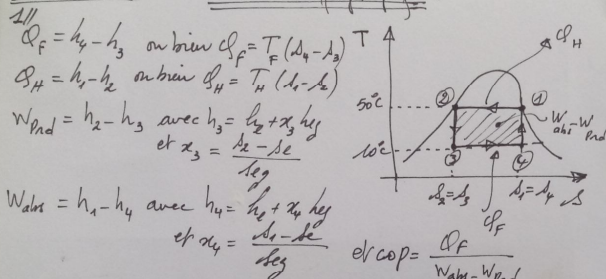 1//
Q_F = h₄ - h₃ ou bien Q_F = T_F (s₄ - s₃)
Q_H = h₁ - h₂ ou bien Q_H = T_H (s₁ - s₂)
W_Prd = h₂ - h₃ avec h₃ = h_e + x₃ h_eg
et x₃ = (s₂ - s_e) / s_eg
W_abs = h₁ - h₄ avec h₄ = h_e + x₄ h_eg
et x₄ = (s₁ - s_e) / s_eg
et cop = Q_F / (W_abs - W_Prd)
T
Q_H
50°C
②
①
W_abs - W_Prd
10°C
③
④
s₂ = s₃
s₁ = s₄
s
Q_F